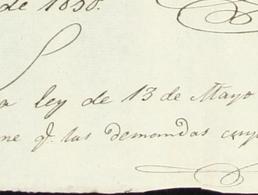 de 1830.
a ley de 13 de Mayo
ne q. las demandas cuy